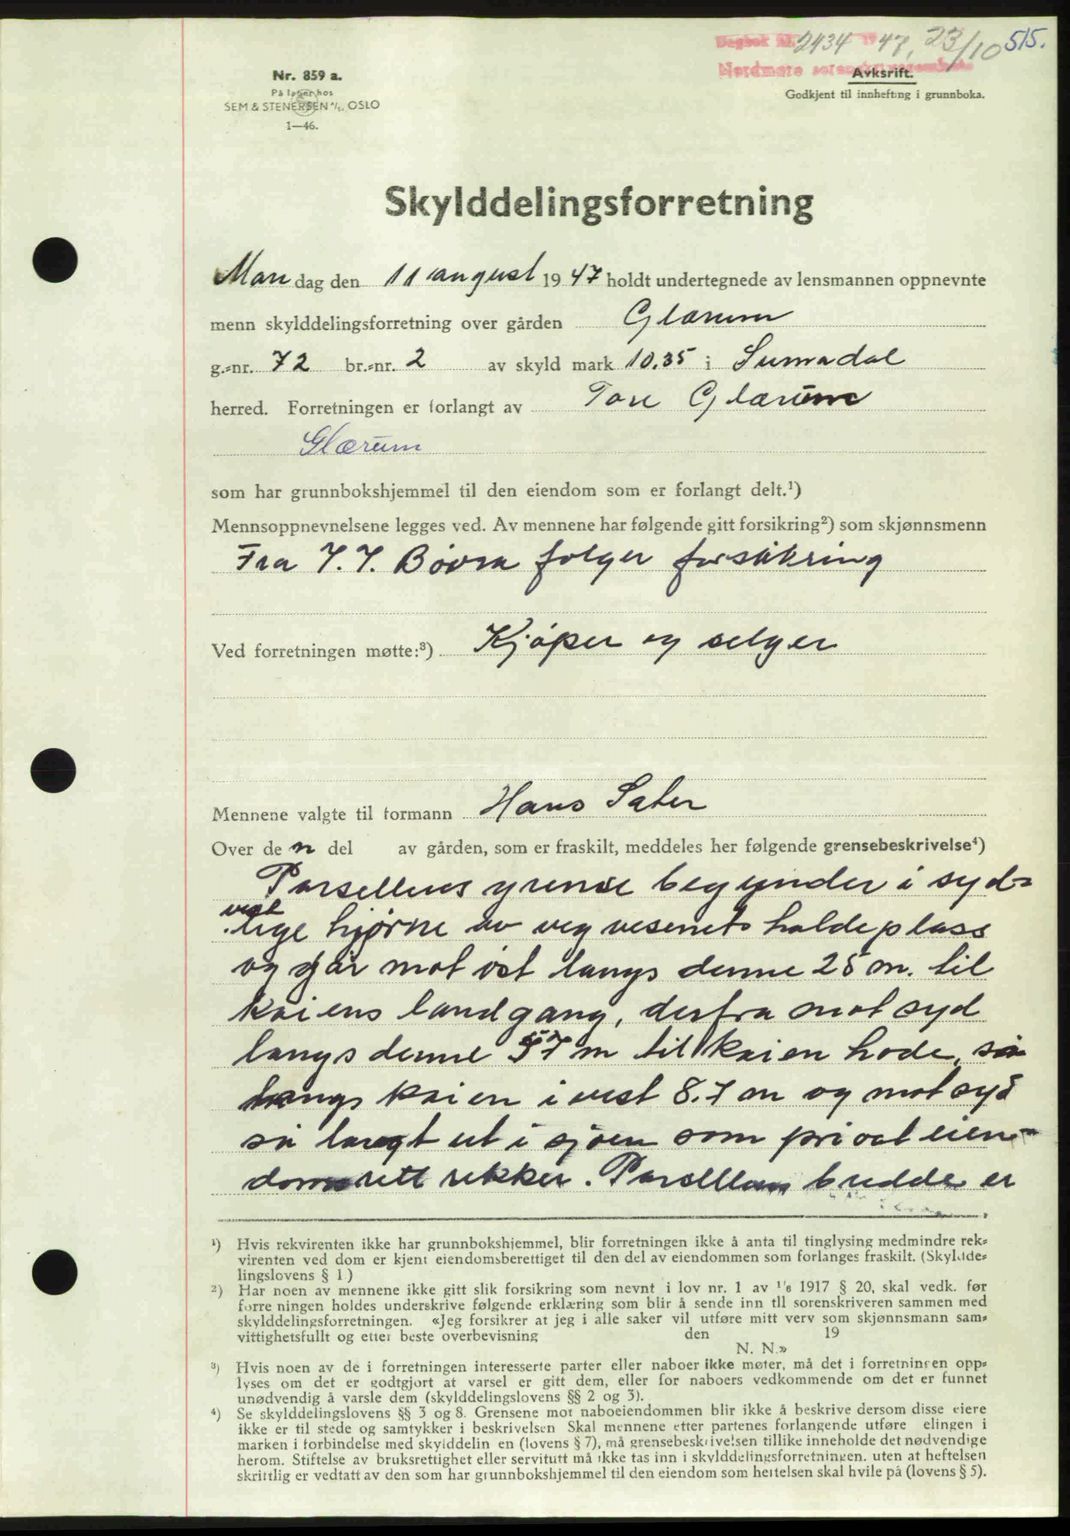 Dagbok nr. 2434 1947, 23/10 515.
Nordmøre sorenskriverembete
Avskrift.
Godkjent til innhefting i grunnboka.
Nr. 859 a.
På lager hos
SEM & STENERSEN A/S, OSLO
1—46.
Skylddelingsforretning
Mandag den 11 august 1947 holdt undertegnede av lensmannen oppnevnte
menn skylddelingsforretning over gården Glærum
g.-nr. 72 br.-nr. 2 av skyld mark 10.35 i Surnadal
herred. Forretningen er forlangt av Tore Glærum
Glærum
som har grunnbokshjemmel til den eiendom som er forlangt delt.¹)
Mennsoppnevnelsene legges ved. Av mennene har følgende gitt forsikring²) som skjønnsmenn
Fra J. J. Bøvra følger forsikring
Ved forretningen møtte:³) Kjøper og selger
Mennene valgte til formann Hans Sæter
Over den del av gården, som er fraskilt, meddeles her følgende grensebeskrivelse⁴)
Parsellens grense begynder i syd-
vest
lige hjørne av vegvesenets holdeplass
og går mot øst langs denne 25 m. til
kaiens landgang, derfra mot syd
langs denne 57 m til kaien hode, så
langs kaien i vest 8.7 m og mot syd
så langt ut i sjøen som privat eien-
domsrett rekker. Parsellens bredde er
¹) Hvis rekvirenten ikke har grunnbokshjemmel, blir forretningen ikke å anta til tinglysing medmindre rek-
virenten ved dom er kjent eiendomsberettiget til den del av eiendommen som forlanges fraskilt. (Skyldde-
lingslovens § 1)
²) Har noen av mennene ikke gitt slik forsikring som nevnt i lov nr. 1 av ¹/₆ 1917 § 20, skal vedk. før
forretningen holdes underskrive følgende erklæring som blir å sende inn til sorenskriveren sammen med
skylddelingsforretningen. «Jeg forsikrer at jeg i alle saker vil utføre mitt verv som skjønnsmann sam-
vittighetsfullt og etter beste overbevisning den 19
N. N.»
³) Hvis noen av de i forretningen interesserte parter eller naboer ikke møter, må det i forretningen opp-
lyses om det er godtgjort at varsel er gitt dem, eller for naboers vedkommende om det er funnet
unødvendig å varsle dem (skylddelingslovens §§ 2 og 3).
⁴) Se skylddelingslovens §§ 3 og 8. Grensene mot naboeiendommen blir ikke å beskrive dersom disse eiere
ikke er til stede og samtykker i beskrivelsen Skal mennene etter partenes forlangende utføre elingen i
marken i forbindelse med skylddelin en (lovens § 7), må grensebeskrivelsen tillike inneholde det nødvendige
herom. Stiftelse av bruksrettighet eller servitutt må ikke tas inn i skylddelingsforretningen. uten at heftelsen
skriftlig er vedtatt av den som har grunnbokshjemmel til den eiendom som heftelsen skal hvile på (lovens § 5).